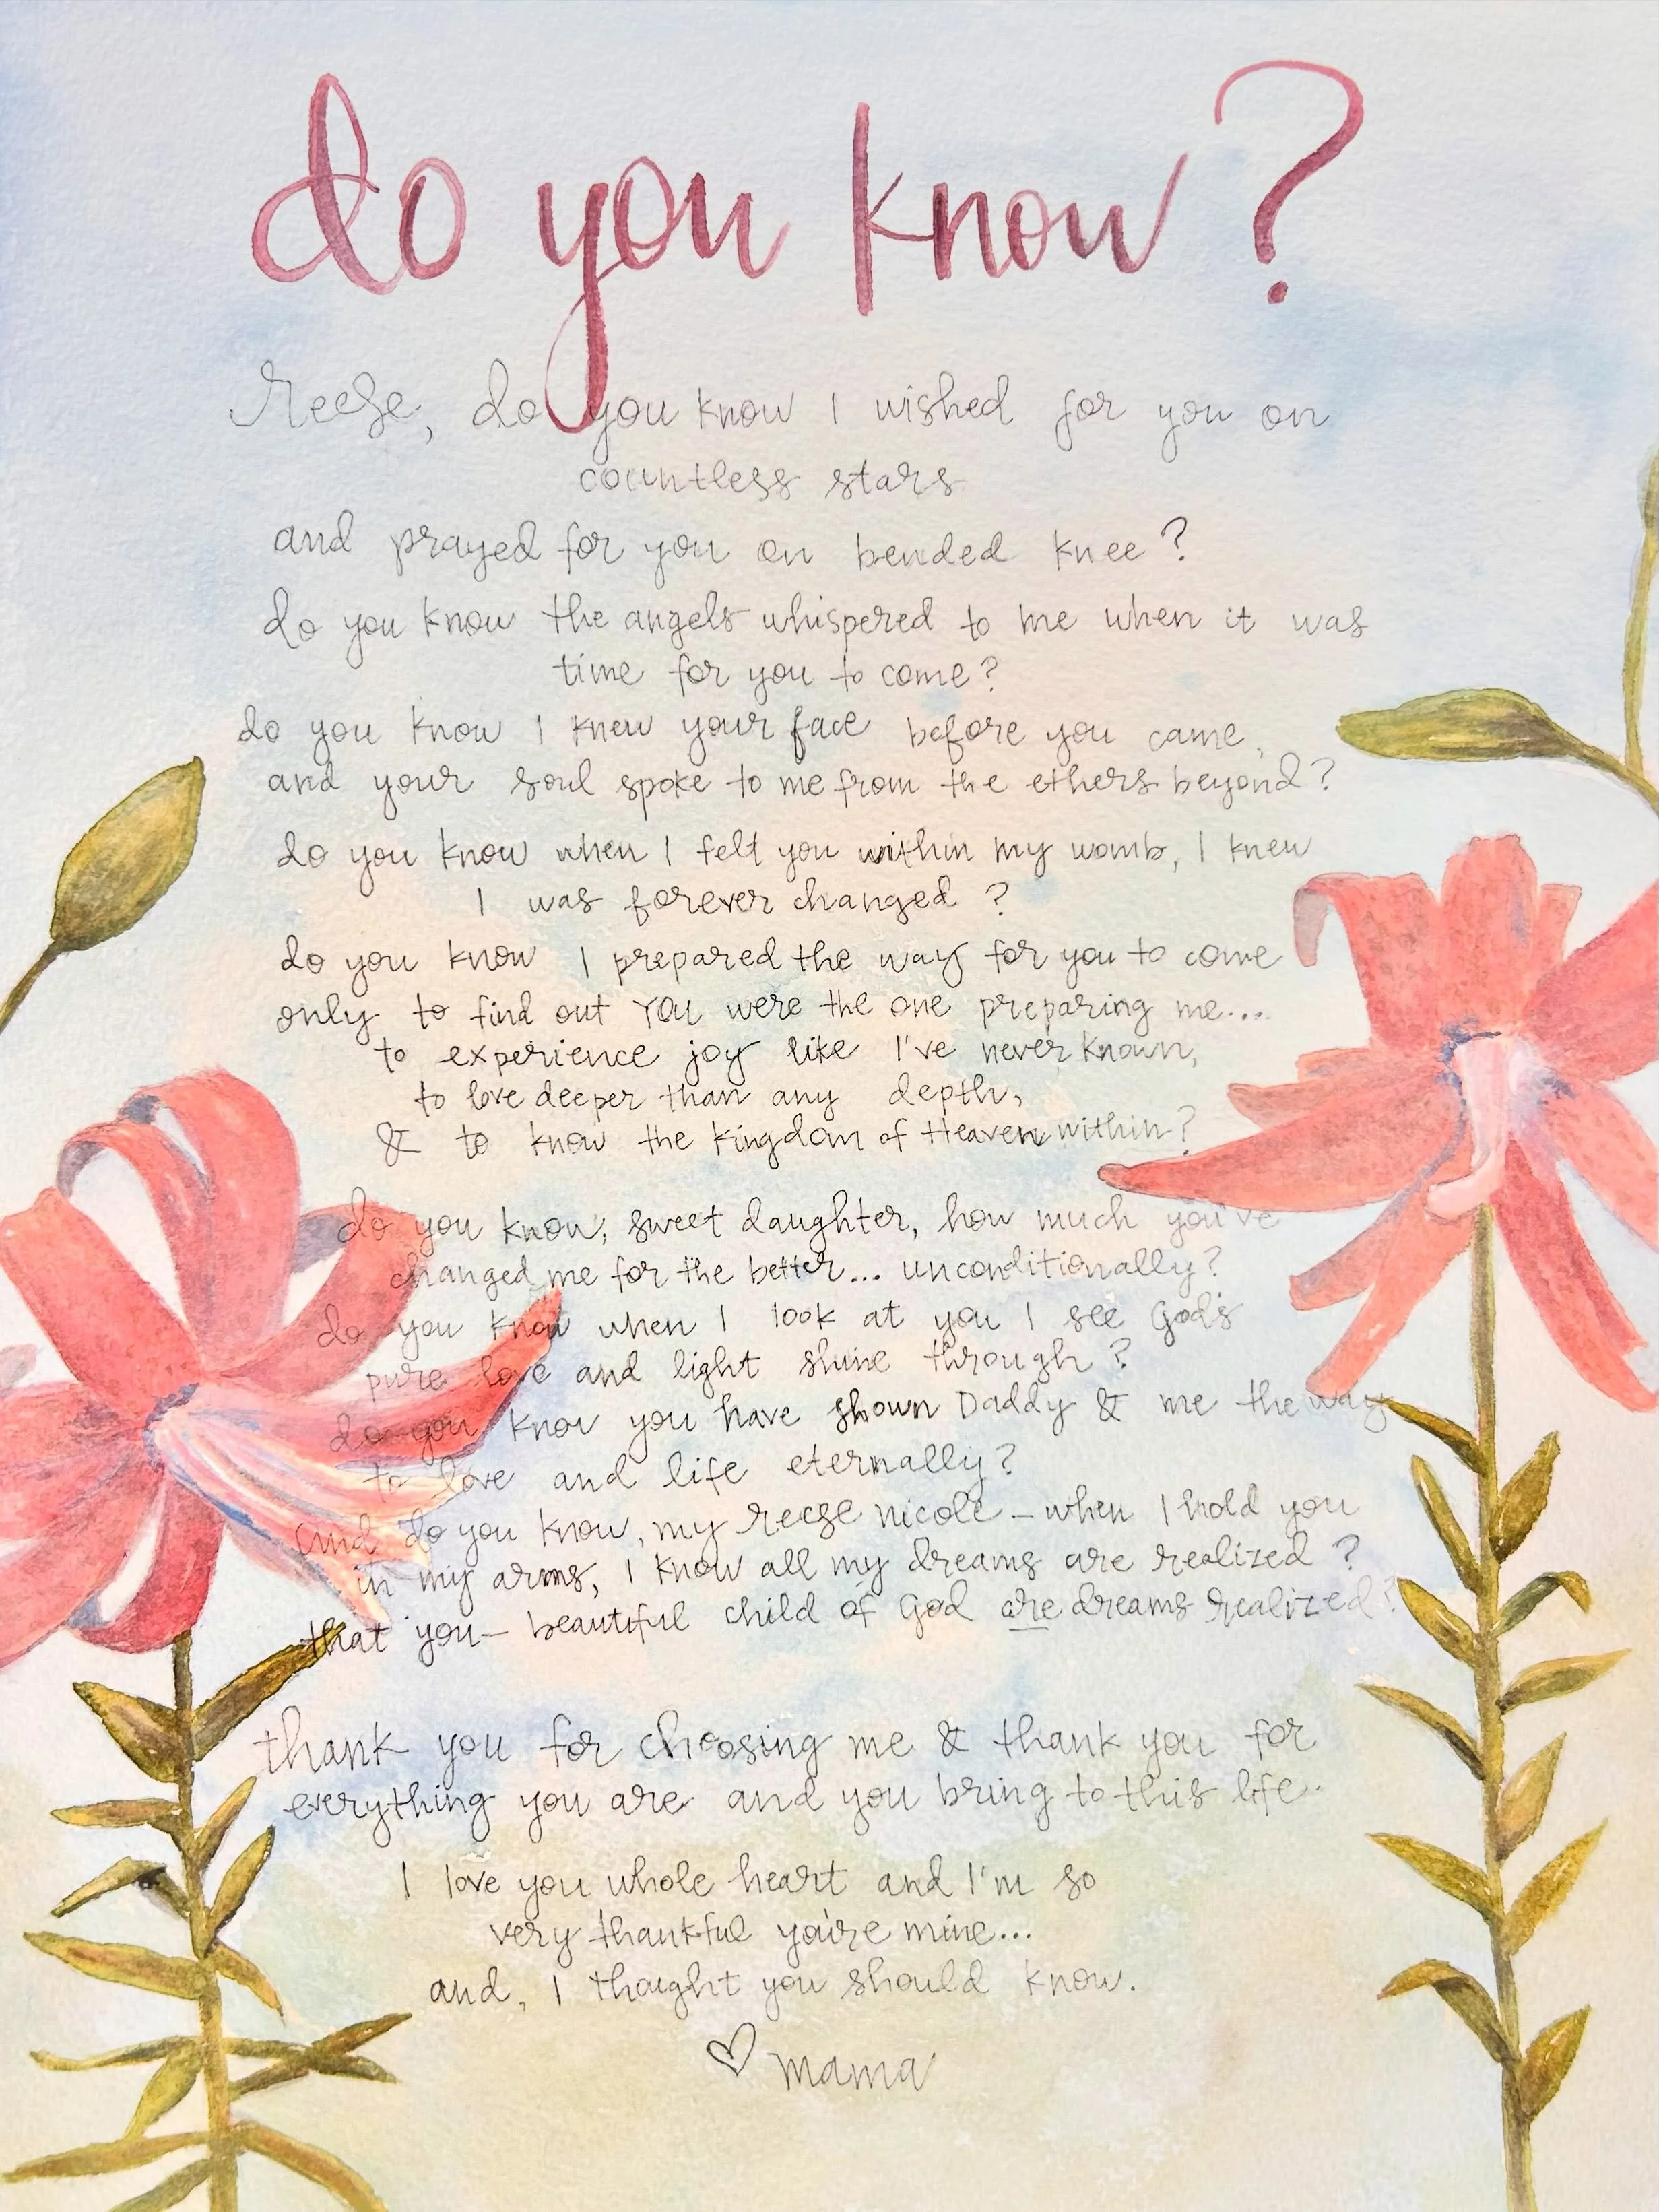 do you know?
Reese, do you know I wished for you on
countless stars
and prayed for you on bended knee?
do you know the angels whispered to me when it was
time for you to come?
do you know I knew your face before you came,
and your soul spoke to me from the ethers beyond?
do you know when I felt you within my womb, I knew
I was forever changed?
do you know I prepared the way for you to come
only to find out YOU were the one preparing me...
to experience joy like I've never known,
to love deeper than any depth,
& to know the Kingdom of Heaven within?
do you know, sweet daughter, how much you've
changed me for the better... unconditionally?
do you know when I look at you I see God's
pure love and light shine through?
do you know you have shown Daddy & me the way
to love and life eternally?
and do you know, my reese nicole - when I hold you
in my arms, I know all my dreams are realized?
that you- beautiful child of God are dreams realized?
thank you for choosing me & thank you for
everything you are and you bring to this life.
I love you whole heart and I'm so
very thankful you're mine...
and, I thought you should know.
♡ mama